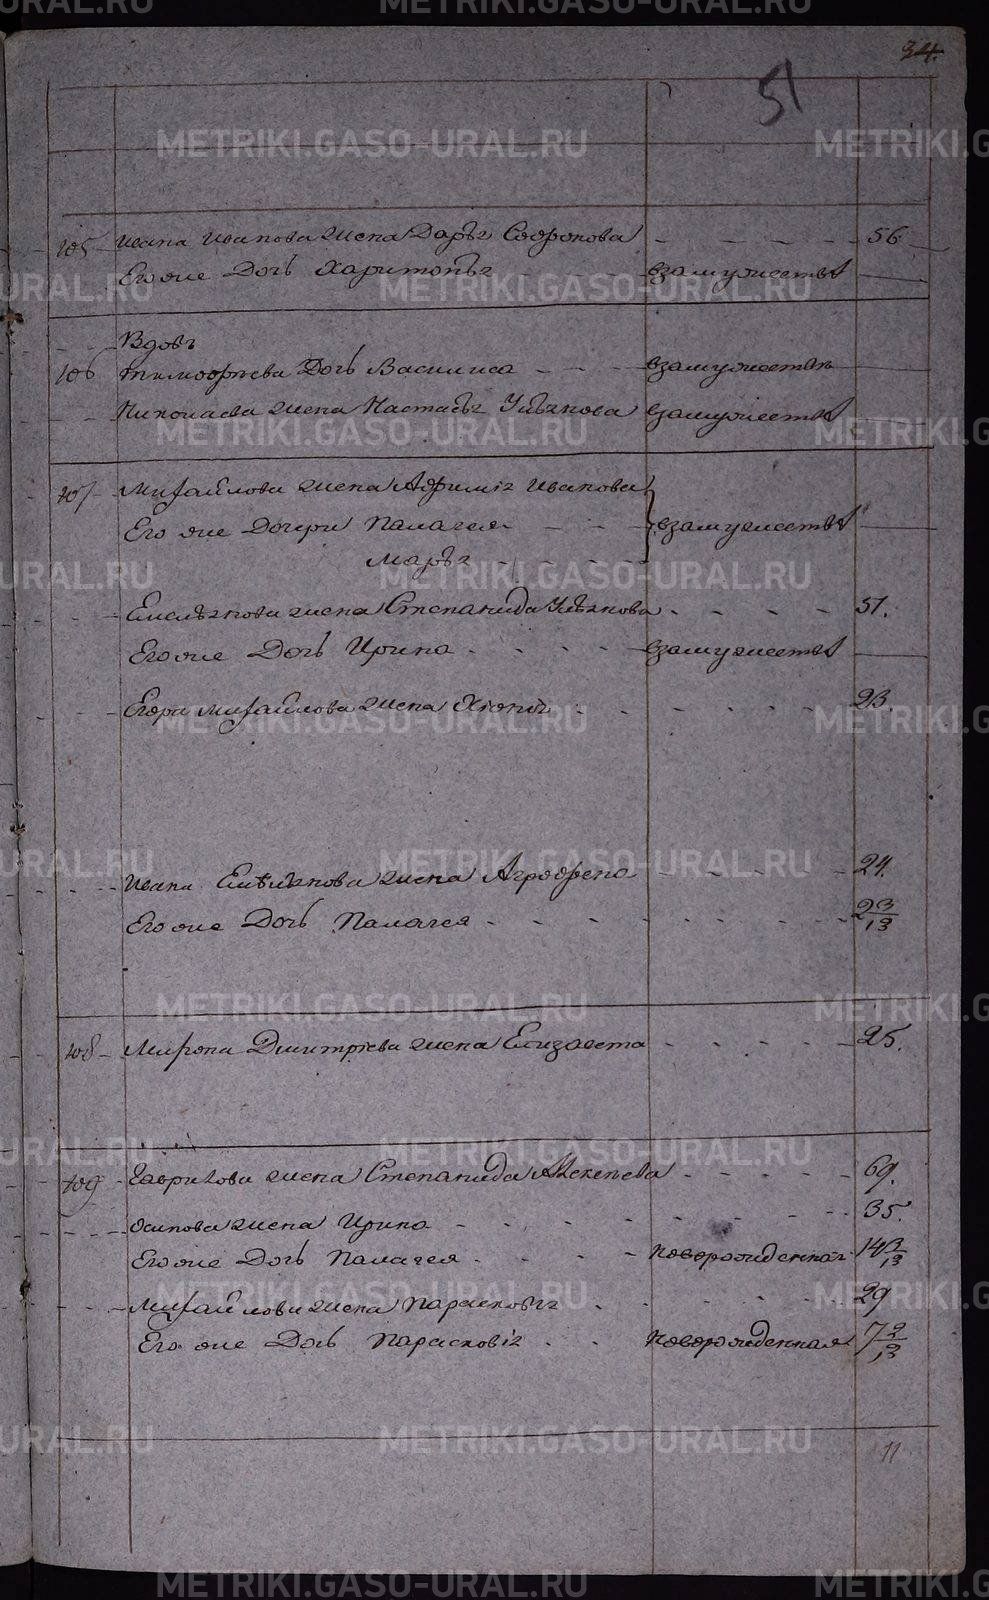 34.
51
105 Ивана Иванова жена Дарья Софронова 56
Его же Дочь Харитонья взамужестве
Вдовы
106 Тимофеева Дочь Василиса взамужестве
Николаева жена Настасья Ульянова взамужестве
107 Михайлова жена Афимия Иванова
Его же Дочери Палагея взамужестве
Марья
Емельянова жена Степанида Ульянова 51.
Его же Дочь Ирина взамужестве
Егора Михайлова жена Хиония 23.
Ивана Емельянова жена Аграфена 24.
Его же Дочь Палагея 23/13
108 Мирона Дмитриева жена Елизавета 25.
109 Гаврилова жена Степанида Алекеева 69.
Осипова жена Ирина 35.
Его же Дочь Палагея новорожденная 143/13
Михайлова жена Парасковья 29
Его же Дочь Парасковія новорожденная 72/13
11
METRIKI.GASO-URAL.RU